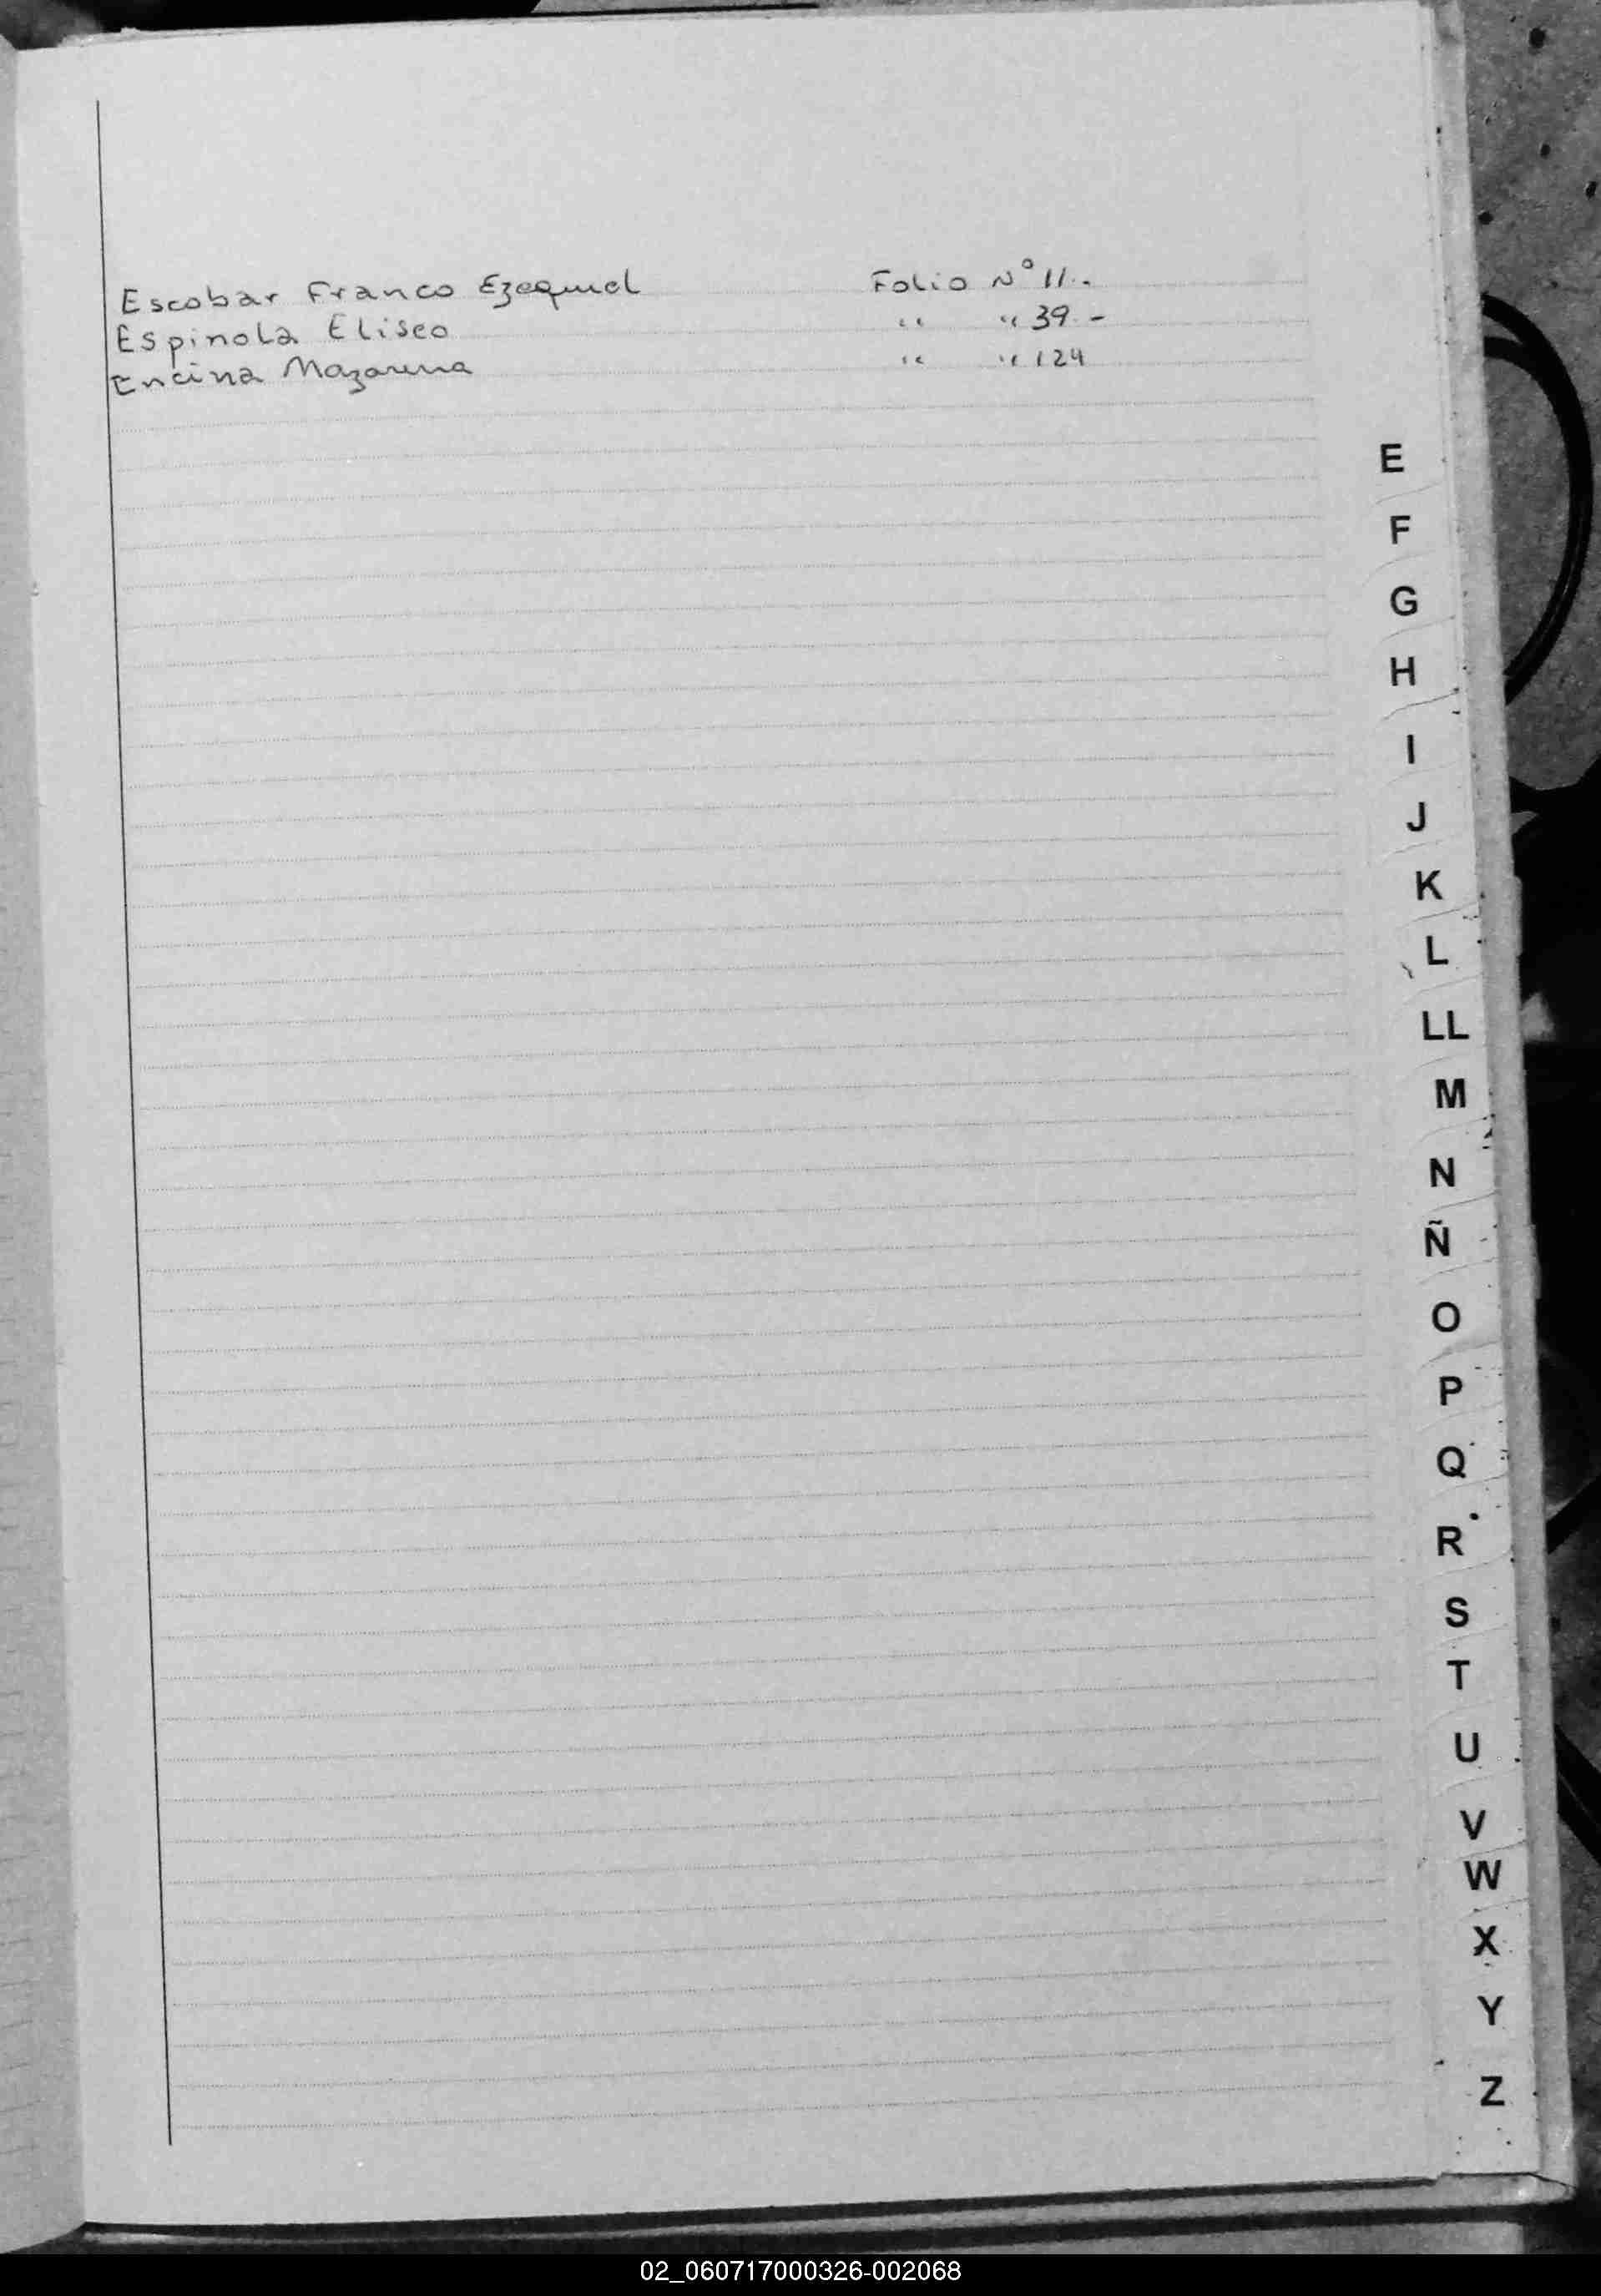 Escobar Franco Ezequiel Folio Nº 11.-
Espinola Eliseo " " 39.-
Encina Nazarena " " 124
E
F
G
H
I
J
K
L
LL
M
N
Ñ
O
P
Q
R
S
T
U
V
W
X
Y
Z
02_060717000326-002068